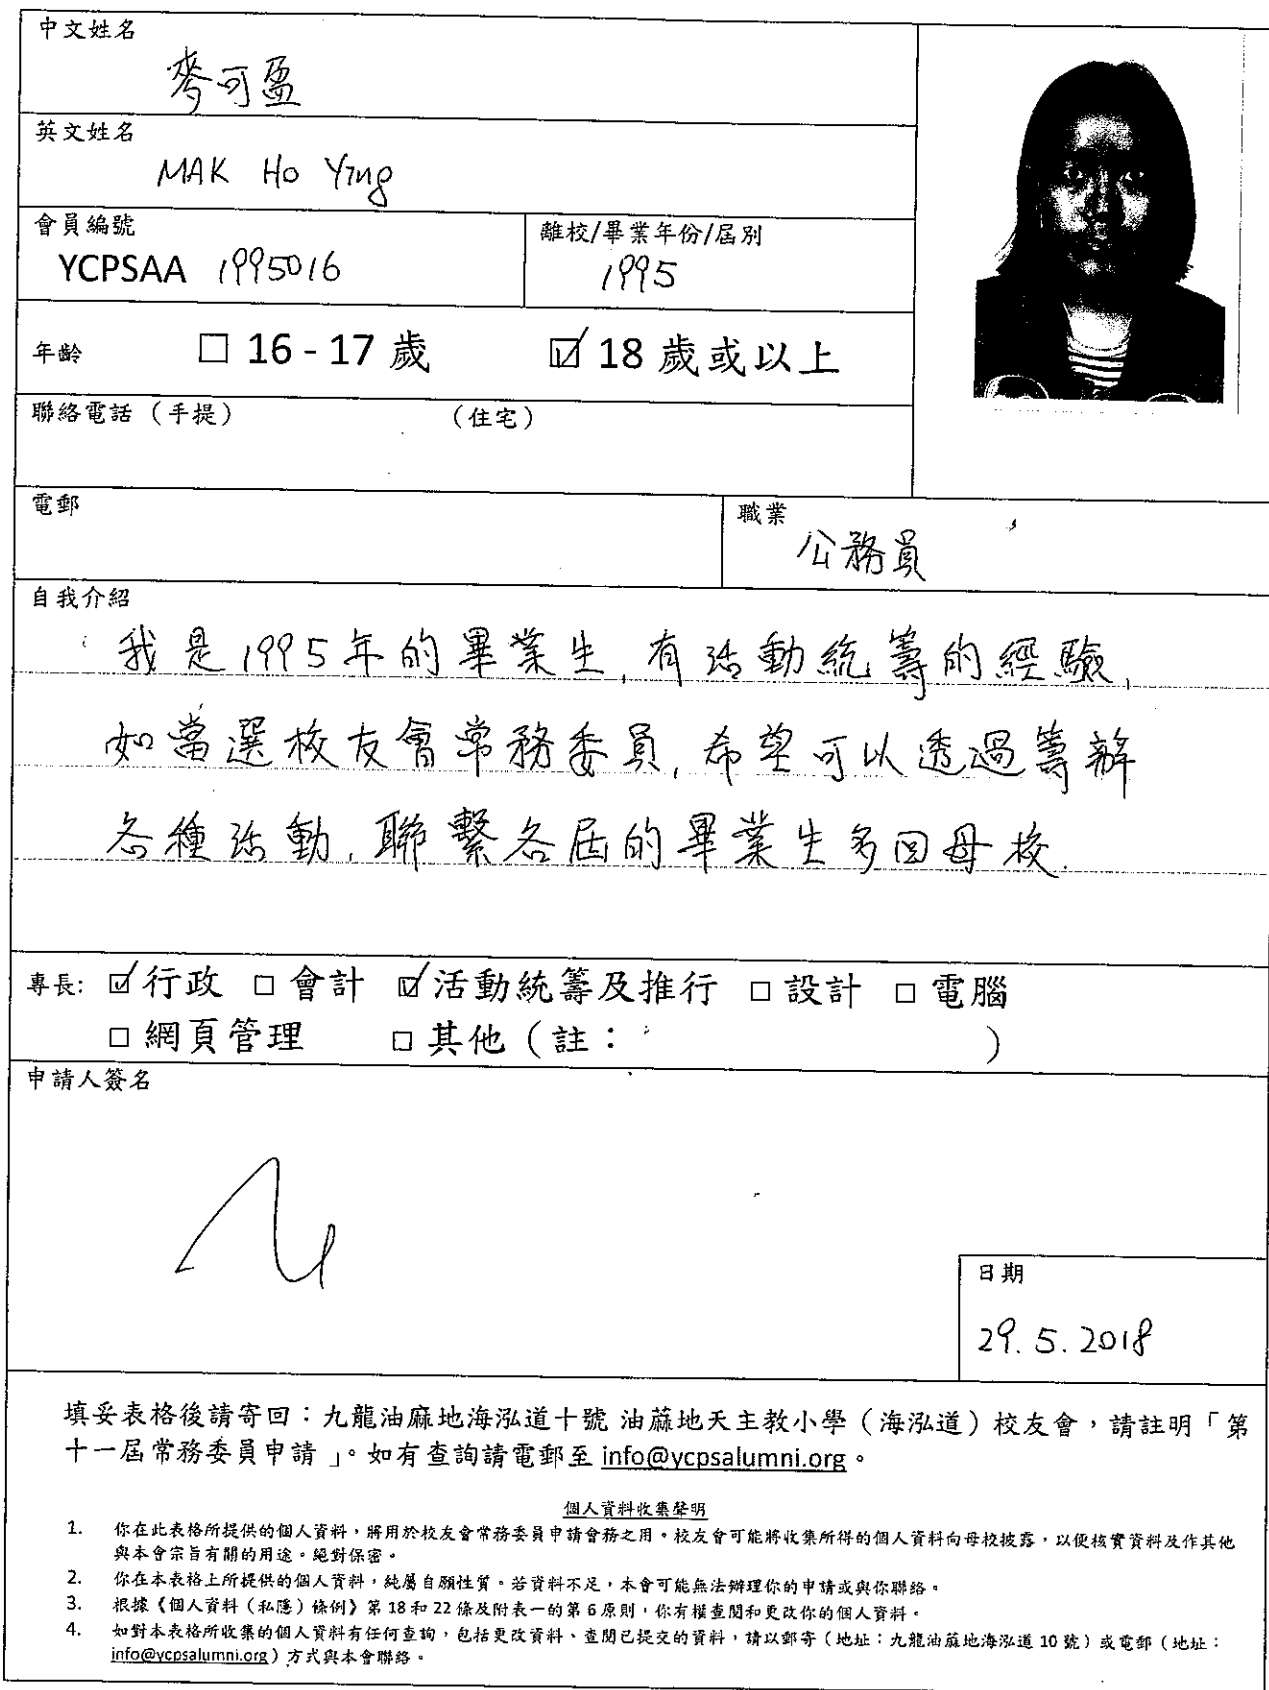 中文姓名
麥可盈
英文姓名
MAK Ho Ying
會員編號
YCPSAA 1995016
離校/畢業年份/屆別
1995
年齡 □ 16 - 17 歲 ☑ 18 歲或以上
聯絡電話（手提） （住宅）
電郵
職業
公務員
自我介紹
我是1995年的畢業生, 有活動統籌的經驗,
如當選校友會常務委員, 希望可以透過籌辦
各種活動, 聯繫各屆的畢業生多回母校.
專長: ☑ 行政 □ 會計 ☑ 活動統籌及推行 □ 設計 □ 電腦
□ 網頁管理 □ 其他（註： ）
申請人簽名
日期
29.5.2018
填妥表格後請寄回：九龍油麻地海泓道十號 油蔴地天主教小學（海泓道）校友會，請註明「第
十一屆常務委員申請 」。如有查詢請電郵至 info@ycpsalumni.org。
個人資料收集聲明
1. 你在此表格所提供的個人資料，將用於校友會常務委員申請會務之用。校友會可能將收集所得的個人資料向母校披露，以便核實資料及作其他
與本會宗旨有關的用途。絕對保密。
2. 你在本表格上所提供的個人資料，純屬自願性質。若資料不足，本會可能無法辦理你的申請或與你聯絡。
3. 根據《個人資料（私隱）條例》第 18 和 22 條及附表一的第 6 原則，你有權查閱和更改你的個人資料。
4. 如對本表格所收集的個人資料有任何查詢，包括更改資料、查閱已提交的資料，請以郵寄（地址：九龍油蔴地海泓道 10 號）或電郵（地址：
info@ycpsalumni.org）方式與本會聯絡。